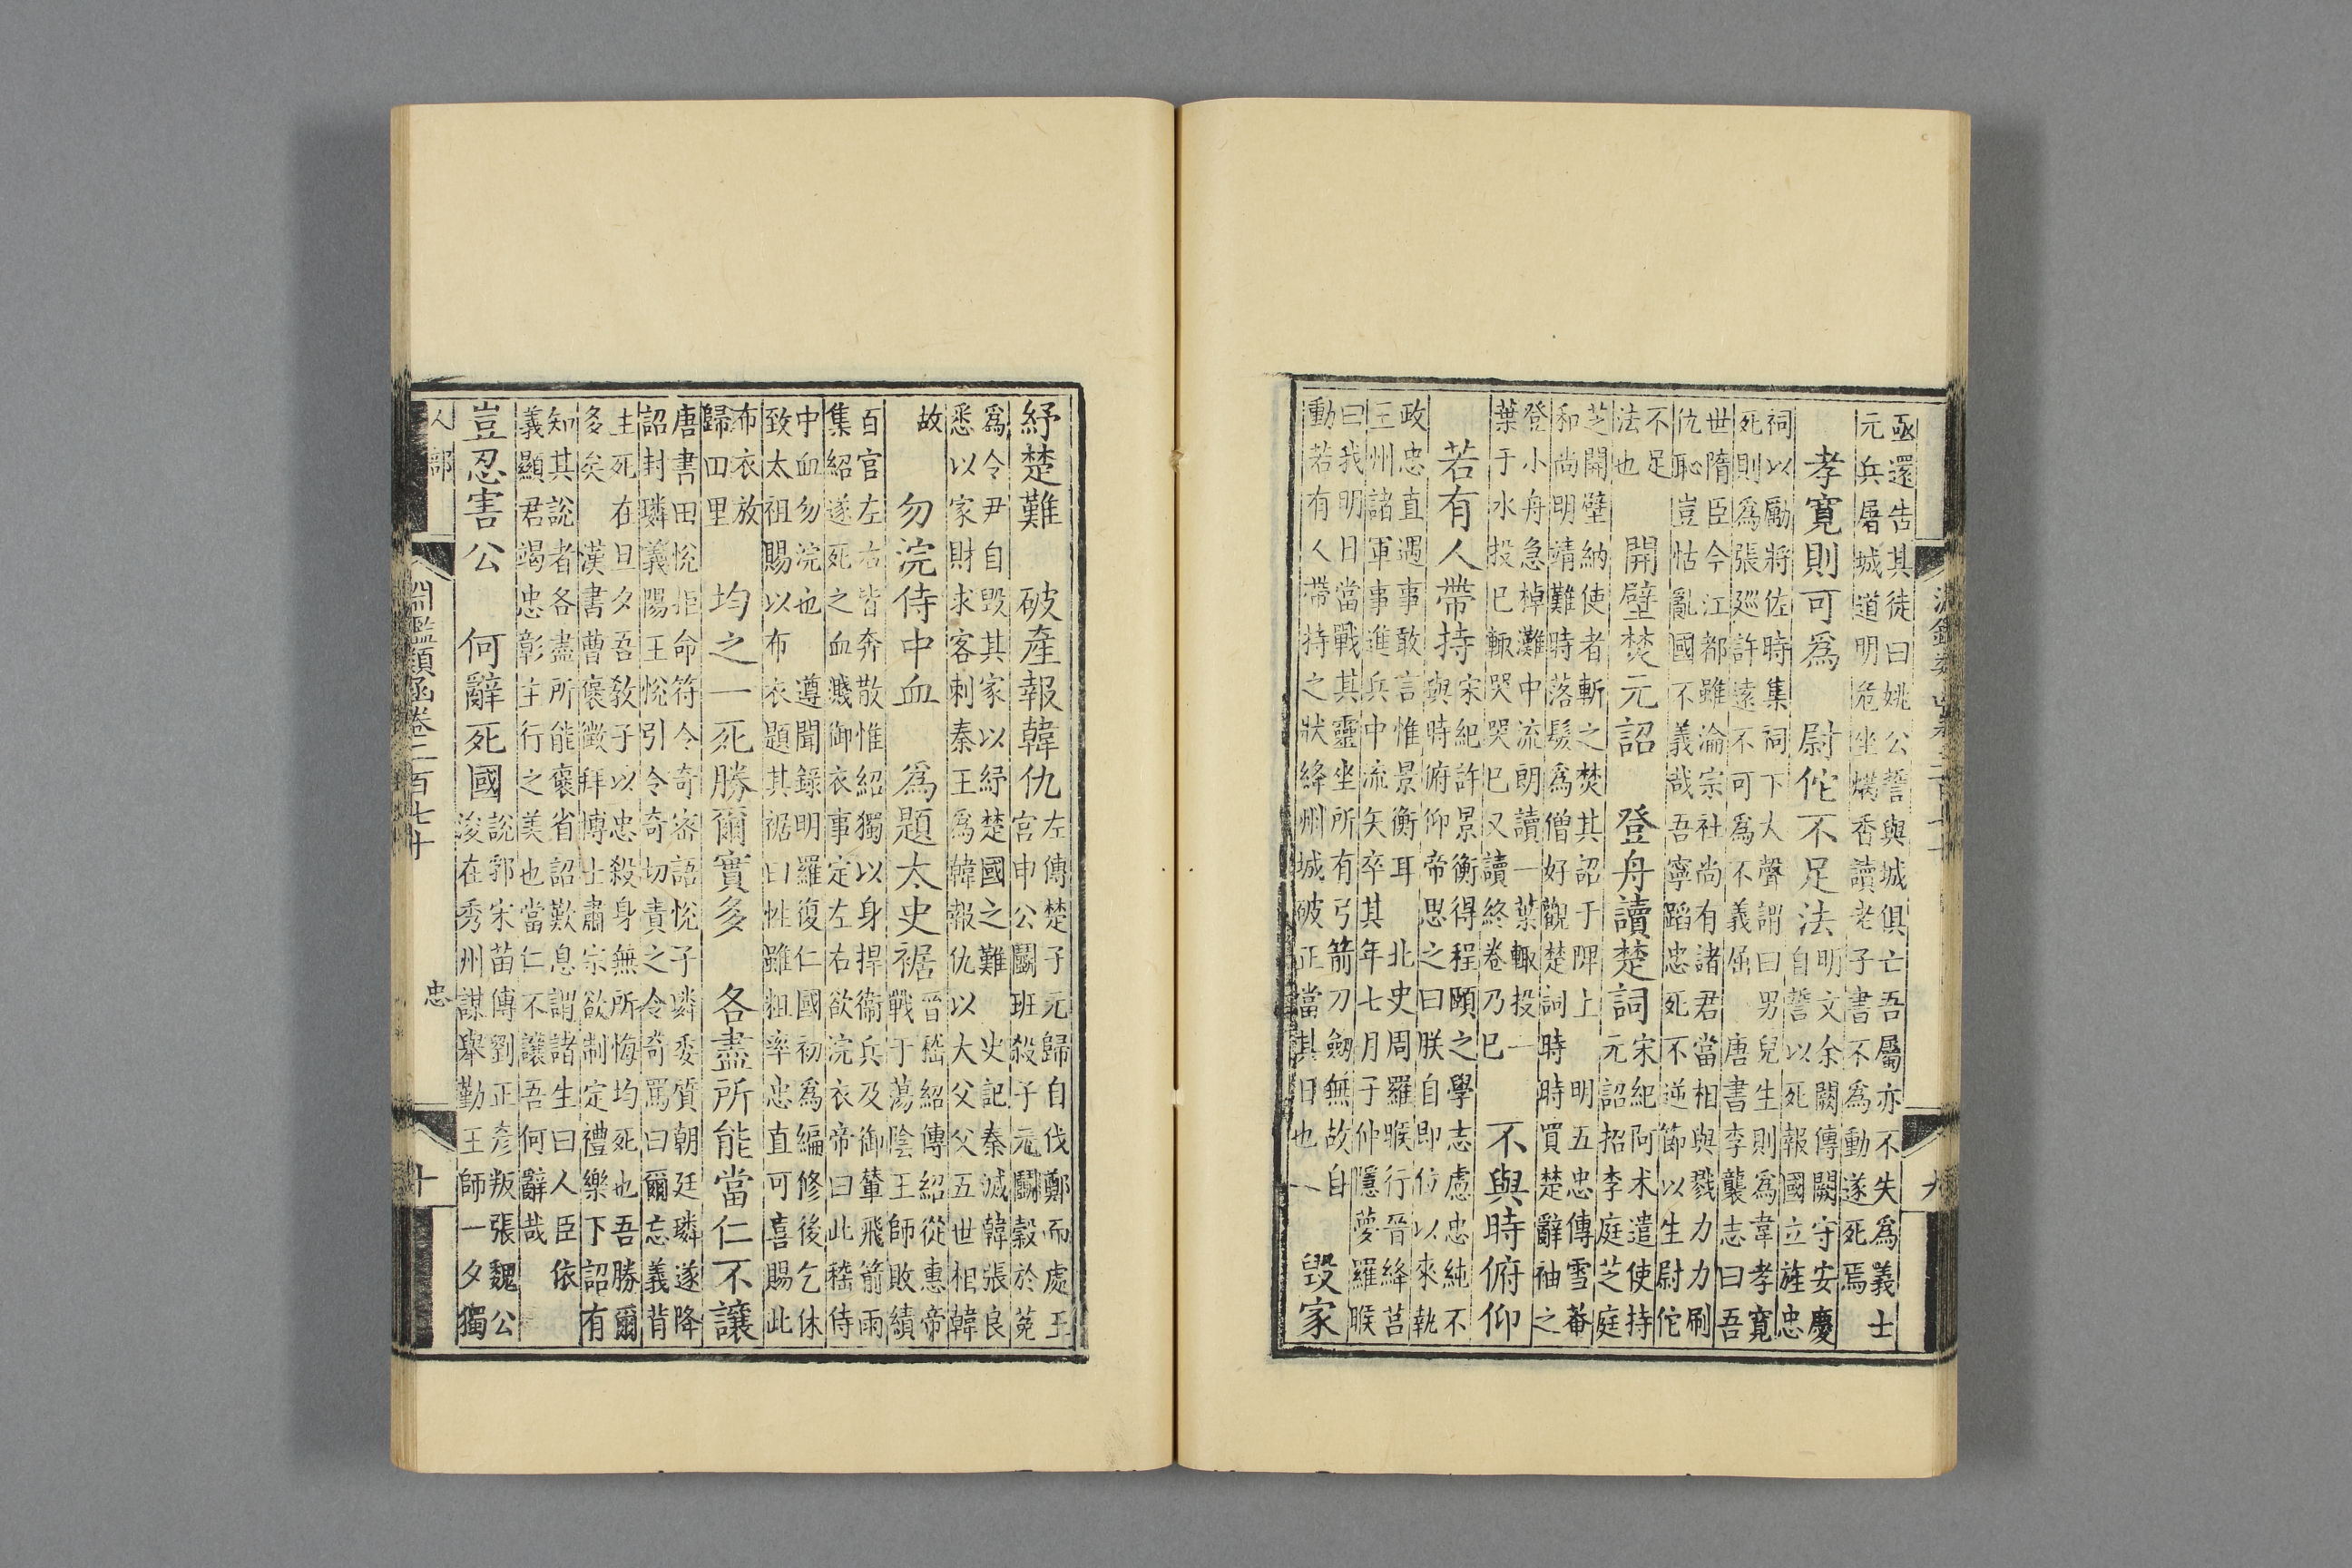 亟還告其徒曰姚公誓與城俱亡吾屬亦不失為義士
元兵屠城道明危坐爇香讀老子書不為動遂死焉
孝寬則可為　尉佗不足法
明文余闕傳闕守安慶
自誓以死報國立旌忠
祠以勵將佐時集祠下大聲謂曰男兒生則為韋孝寬
死則為張廵許遠不可為不義屈　唐書李襲志曰吾
世隋臣今江都雖淪宗社尚有諸君當相與戮力刷
仇恥豈怙亂國不義哉吾寧蹈忠死不逆節以生尉佗
不足
法也
開壁焚元詔　登舟讀楚詞
宋紀阿术遣使持
元詔招李庭芝庭
芝開壁納使者斬之焚其詔于陴上　明五忠傳雪菴
和尚明靖難時落髮為僧好觀楚詞時時買楚辭袖之
登小舟急棹灘中流朗讀一葉輒投一
葉于水投已輒哭哭已又讀終卷乃已
不與時俯仰
若有人帶持
宋紀許景衡得程頤之學志慮忠純不
與時俯仰帝思之曰朕自即位以來執
政忠直遇事敢言惟景衡耳　北史周羅睺行晉絳莒
三州諸軍事進兵中流矢卒其年七月于仲隱夢羅睺
曰我明日當戰其靈坐所有弓箭刀劒無故自
動若有人帶持之狀絳州城破正當其日也
毀家
紓楚難　破產報韓仇
左傳楚子元歸自伐鄭而處王
宮申公鬭班殺子元鬭穀於菟
為令尹自毀其家以紓楚國之難　史記秦滅韓張良
悉以家財求客刺秦王為韓報仇以大父父五世相韓
故
勿浣侍中血　為題太史裾
晉嵇紹傳紹從惠帝
戰于蕩陰王師敗績
百官左右皆奔散惟紹獨以身捍衞兵及御輦飛箭雨
集紹遂死之血濺御衣事定左右欲浣衣帝曰此嵇侍
中血勿浣也　遵聞錄明羅復仁國初為編修後乞休
致太祖賜以布衣題其裾曰性雖粗率忠直可喜賜此
布衣放
歸田里
均之一死勝爾實多　各盡所能當仁不讓
唐書田悅拒命符令奇密語悅子璘委質朝廷璘遂降
詔封璘義陽王悅引令奇切責之令奇罵曰爾忘義背
主死在旦夕吾敎子以忠殺身無所悔均死也吾勝爾
多矣　漢書曹襃徵拜博士肅宗欲制定禮樂下詔有
知其說者各盡所能襃省詔歎息謂諸生曰人臣依
義顯君竭忠彰主行之美也當仁不讓吾何辭哉
豈忍害公　何辭死國
說郛宋苗傳劉正彥叛張魏公
浚在秀州謀舉勤王師一夕獨
人部
淵鑑類函卷二百七十
忠
十